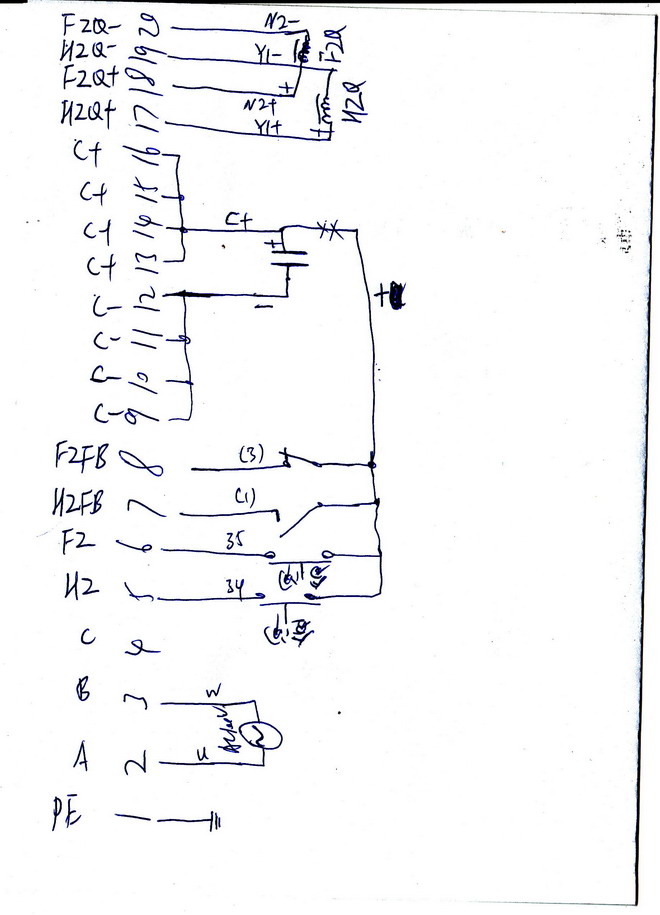 F2Q- 20 N2-
H2Q- 19 Y1- F2Q
F2Q+ 18 +
N2+
H2Q+ 17 Y1+ + H2Q
C+ 16
C+ 15
C+ 14 C+
+
C+ 13
C- 12 - +
C- 11
C- 10
C- 9
F2FB 8 (3)
H2FB 7 (1)
F2 6 35
H2 5 34
C 4
B 3 W
A 2 U
PE 1